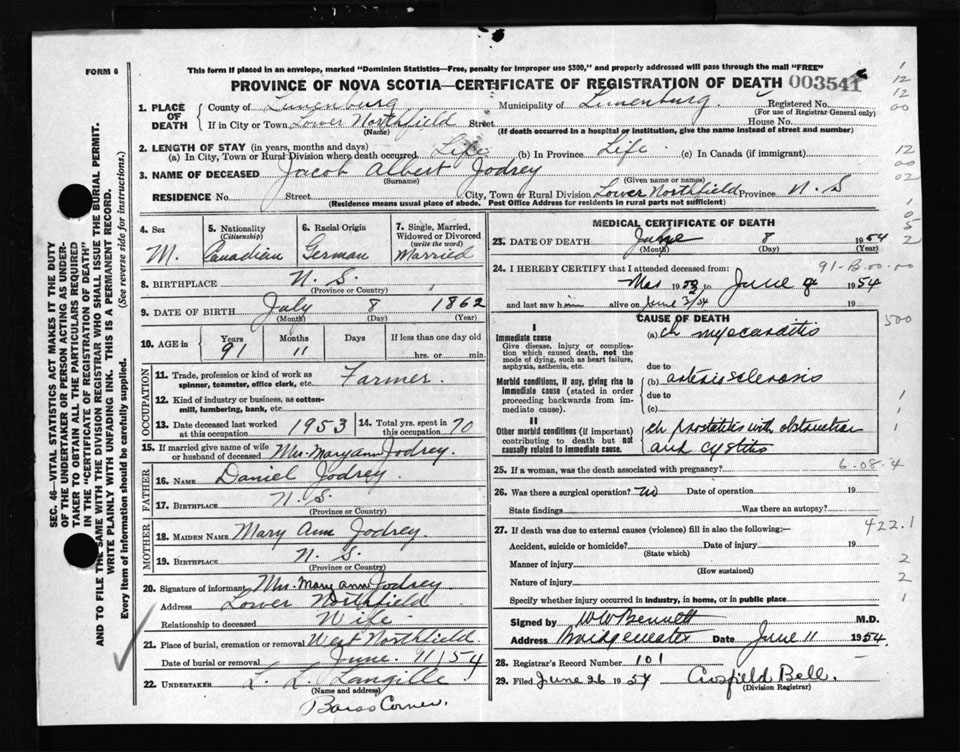 FORM 6
This form if placed in an envelope, marked "Dominion Statistics—Free, penalty for improper use $300," and properly addressed will pass through the mail "FREE"
PROVINCE OF NOVA SCOTIA—CERTIFICATE OF REGISTRATION OF DEATH 003541
1. PLACE OF DEATH
County of Lunenburg Municipality of Lunenburg. Registered No.
(For use of Registrar General only)
If in City or Town Lower Northfield Street House No.
(Name) (If death occurred in a hospital or institution, give the name instead of street and number)
2. LENGTH OF STAY (in years, months and days)
(a) In City, Town or Rural Division where death occurred Life (b) In Province Life. (c) In Canada (if immigrant)
3. NAME OF DECEASED Jacob Albert Jodrey
(Surname) (Given name or names)
RESIDENCE No. Street City, Town or Rural Division Lower Northfield Province N. S
(Residence means usual place of abode. Post Office Address for residents in rural parts not sufficient)
4. Sex M.
5. Nationality (Citizenship) Canadian
6. Racial Origin German
7. Single, Married, Widowed or Divorced (write the word) Married
8. BIRTHPLACE N. S.
(Province or Country)
9. DATE OF BIRTH July 8 1862
(Month) (Day) (Year)
10. AGE in Years 91 Months 11 Days If less than one day old
hrs. or min.
OCCUPATION
11. Trade, profession or kind of work as spinner, teamster, office clerk, etc. Farmer.
12. Kind of industry or business, as cotton-mill, lumbering, bank, etc.
13. Date deceased last worked at this occupation 1953
14. Total yrs. spent in this occupation 70
15. If married give name of wife or husband of deceased Mrs. Mary Ann Jodrey.
FATHER
16. NAME Daniel Jodrey
17. BIRTHPLACE N. S.
(Province or Country)
MOTHER
18. MAIDEN NAME Mary Ann Jodrey.
19. BIRTHPLACE N. S.
(Province or Country)
20. Signature of informant Mrs. Mary Ann Jodrey
Address Lower Northfield
Relationship to deceased Wife
21. Place of burial, cremation or removal West Northfield.
Date of burial or removal June. 11/54
22. UNDERTAKER L. L. Langille
(Name and address)
Barss Corner.
MEDICAL CERTIFICATE OF DEATH
23. DATE OF DEATH June 8 1954
(Month) (Day) (Year)
91-B-00-00
24. I HEREBY CERTIFY that I attended deceased from:
19 to June 1954
and last saw him alive on June 3/54 19
CAUSE OF DEATH
I
Immediate cause
Give disease, injury or complication which caused death, not the mode of dying, such as heart failure, asphyxia, asthenia, etc.
(a) ch myocarditis
due to
Morbid conditions, if any, giving rise to immediate cause (stated in order proceeding backwards from immediate cause).
(b) arteriosclerosis
due to
(c)
II
Other morbid conditions (if important) contributing to death but not causally related to immediate cause.
ch prostatitis with obstruction
and cystitis
25. If a woman, was the death associated with pregnancy?
6-08-4
26. Was there a surgical operation? no Date of operation 19
State findings Was there an autopsy?
27. If death was due to external causes (violence) fill in also the following:
422.1
Accident, suicide or homicide? Date of injury 19
(State which)
Manner of injury
(How sustained)
Nature of injury
Specify whether injury occurred in industry, in home, or in public place
Signed by W W Bennett M.D.
Address Bridgewater Date June 11 1954
28. Registrar's Record Number 101
29. Filed June 26 1954 Crofield Bell.
(Division Registrar)
SEC. 46—VITAL STATISTICS ACT MAKES IT THE DUTY
OF THE UNDERTAKER OR PERSON ACTING AS UNDER-
TAKER TO OBTAIN ALL THE PARTICULARS REQUIRED
IN THE "CERTIFICATE OF REGISTRATION OF DEATH"
AND TO FILE THE SAME WITH THE DIVISION REGISTRAR WHO SHALL ISSUE THE BURIAL PERMIT.
WRITE PLAINLY WITH UNFADING INK. THIS IS A PERMANENT RECORD.
Every item of information should be carefully supplied. (See reverse side for instructions.)
1
12
12
00
12
00
02
1
0
5
2
500
1
1
1
2
2
1